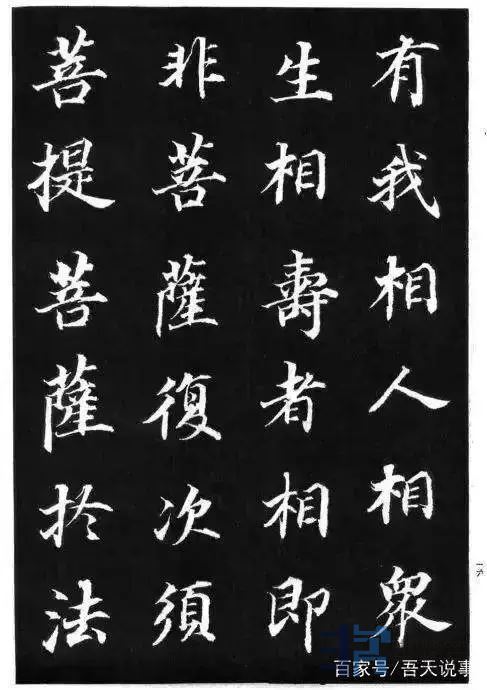 有我相人相眾
生相壽者相即
非菩薩復次須
菩提菩薩於法
一六
百家号/吾天说事